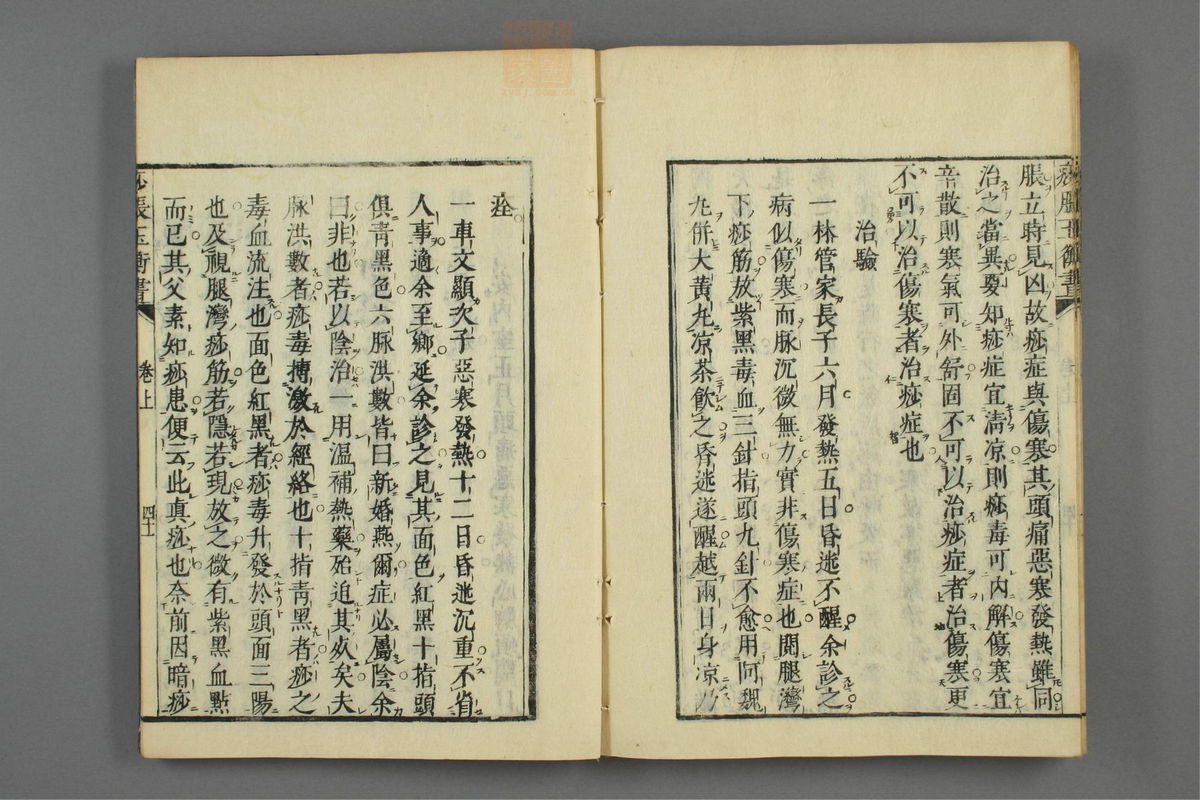 痧脹玉衡書
脹立時見凶故痧症與傷寒其頭痛惡寒發熱雖同
治之當異要知痧症宜清凉則痧毒可内解傷寒宜
辛散則寒氣可外舒固不可以治痧症者治傷寒更
不可以治傷寒者治痧症也
治驗
一林管家長子六月發熱五日昏迷不醒余診之
病似傷寒而脉沉微無力實非傷寒症也閱腿灣
下痧筋放紫黑毒血三針指頭九針不愈用阿魏
丸併大黄丸凉茶飲之昏迷遂醒越兩日身凉乃
痊
一車文顯次子惡寒發熱十二日昏迷沉重不省
人事適余至鄉延余診之見其面色紅黑十指頭
俱青黑色六脉洪數皆曰新婚燕爾症必屬陰余
曰非也若以陰治一用温補熱藥殆追其疚矣夫
脉洪數者痧毒搏激於經絡也十指青黑者痧之
毒血流注也面色紅黑者痧毒升發於頭面三陽
也及視腿灣痧筋若隱若現放之微有紫黑血點
而已其父素知痧患便云此真痧也奈前因暗痧
痧脹玉衡書 卷上 四十